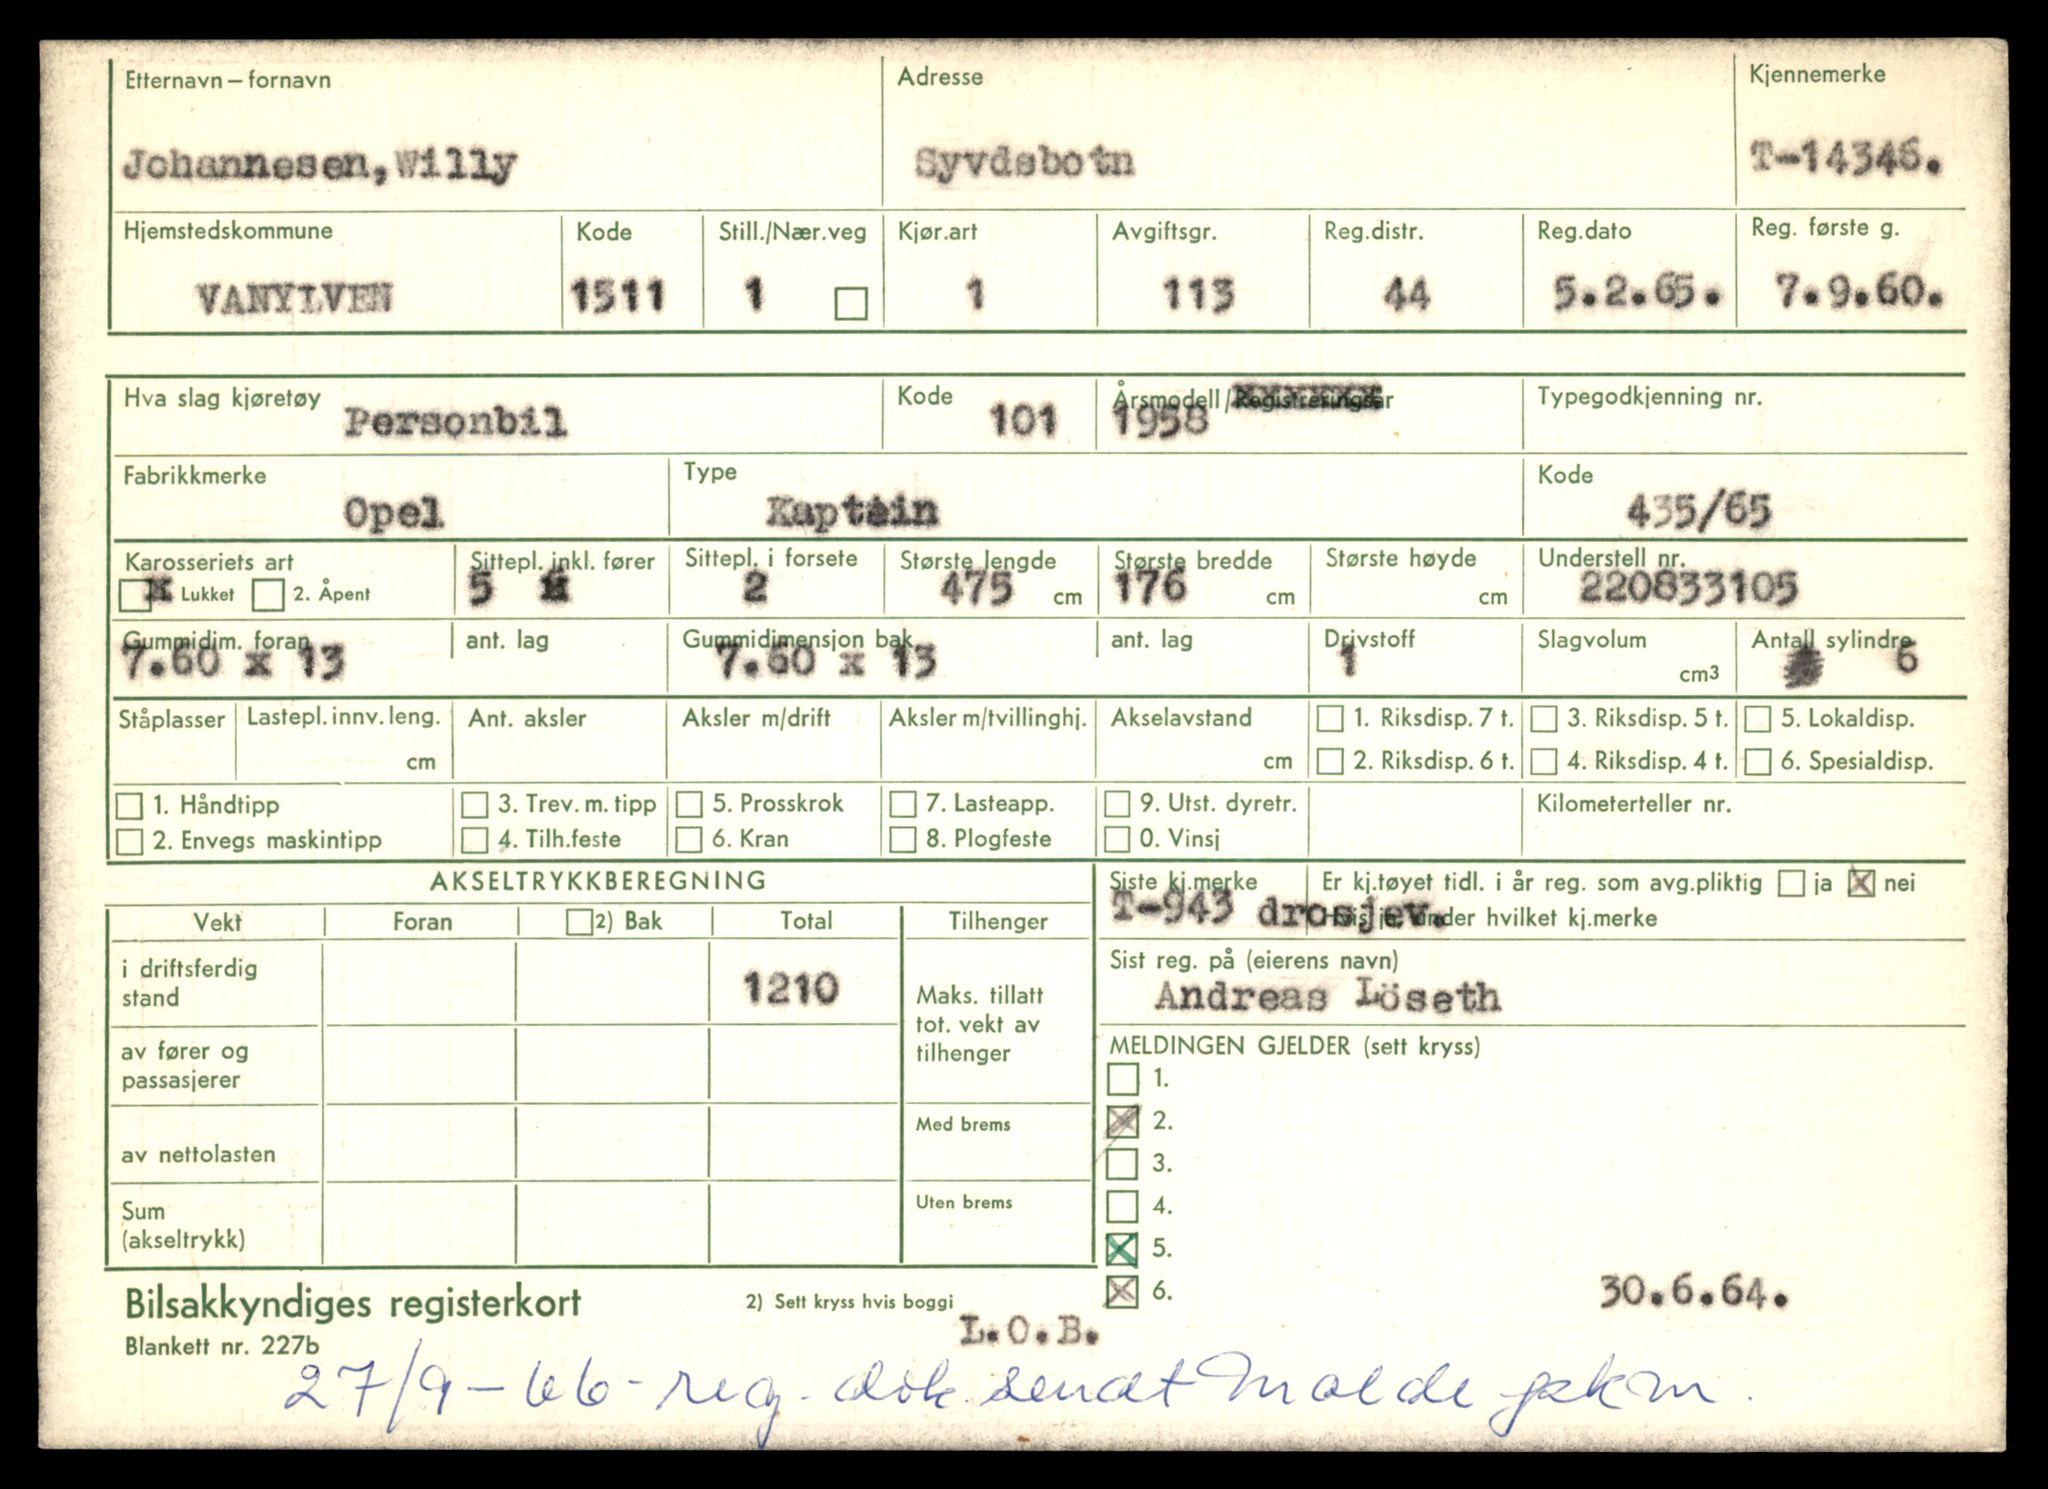 Etternavn – fornavn Adresse Kjennemerke
Johannesen, Willy Syvdsbotn T-14346.
Hjemstedskommune Kode Still./Nær.veg Kjør.art Avgiftsgr. Reg.distr. Reg.dato Reg. første g.
VANYLVEN 1511 1 1 113 44 5.2.65. 7.9.60.
Hva slag kjøretøy Kode Årsmodell/Registreringsår Typegodkjenning nr.
Personbil 101 1958
Fabrikkmerke Type Kode
Opel Kaptein 435/65
Karosseriets art Sittepl. inkl. fører Sittepl. i forsete Største lengde Største bredde Største høyde Understell nr.
X Lukket 2. Åpent 5 2 475 cm 176 cm cm 220833105
Gummidim. foran ant. lag Gummidimensjon bak ant. lag Drivstoff Slagvolum Antall sylindre
7.60 x 13 7.60 x 13 1 cm3 6
Ståplasser Lastepl. innv. leng. Ant. aksler Aksler m/drift Aksler m/tvillinghj. Akselavstand 1. Riksdisp. 7 t. 3. Riksdisp. 5 t. 5. Lokaldisp.
cm cm 2. Riksdisp. 6 t. 4. Riksdisp. 4 t. 6. Spesialdisp.
1. Håndtipp 3. Trev. m. tipp 5. Prosskrok 7. Lasteapp. 9. Utst. dyretr. Kilometerteller nr.
2. Envegs maskintipp 4. Tilh.feste 6. Kran 8. Plogfeste 0. Vinsj
AKSELTRYKKBEREGNING Siste kj.merke Er kj.tøyet tidl. i år reg. som avg.pliktig ja X nei
T-943 drosjev. Hvis ja, under hvilket kj.merke
Vekt Foran 2) Bak Total Tilhenger
Sist reg. på (eierens navn)
Andreas Löseth
i driftsferdig stand 1210
Maks. tillatt tot. vekt av tilhenger
MELDINGEN GJELDER (sett kryss)
av fører og passasjerer
1.
X 2.
Med brems
av nettolasten
3.
4.
Uten brems
Sum (akseltrykk)
X 5.
X 6. 30.6.64.
Bilsakkyndiges registerkort 2) Sett kryss hvis boggi
L.O.B.
Blankett nr. 227b
27/9-66- reg. dok. sendt Molde pol.km.